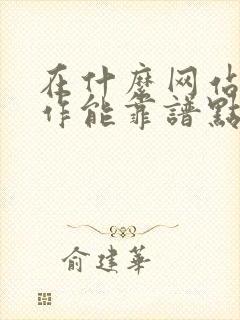 在什麼网站
作能靠譜點
俞建華